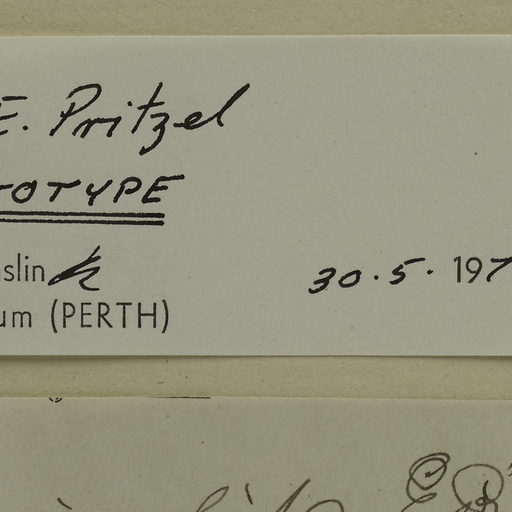 E. Pritzel
TOTYPE
slin 30.5.197
um (PERTH)